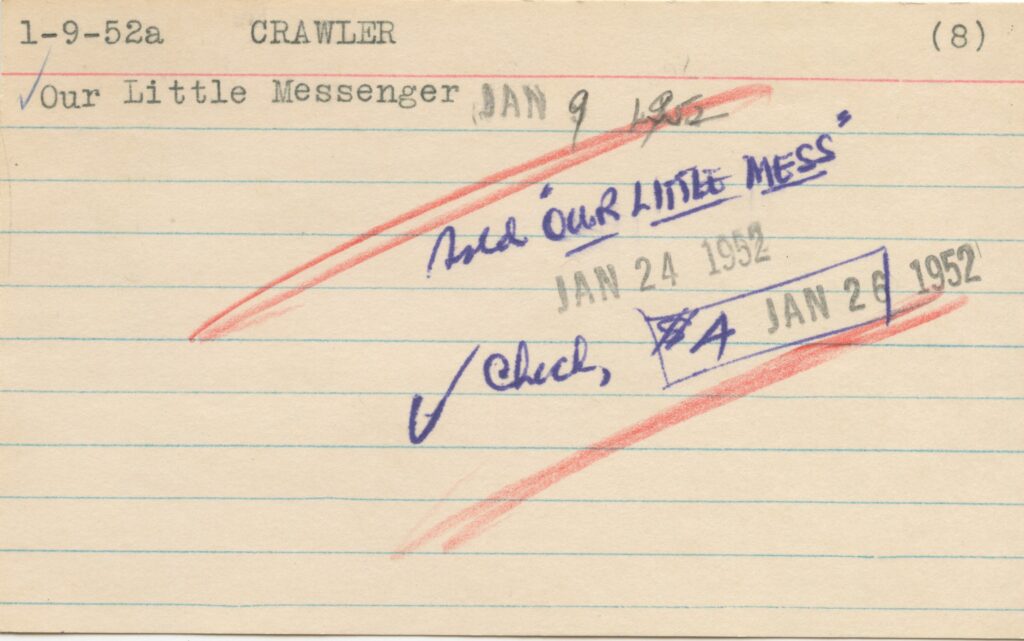 1-9-52a CRAWLER (8)
✓Our Little Messenger JAN 9 1952
Sold "OUR LITTLE MESS"
JAN 24 1952
✓ Check, $4 JAN 26 1952